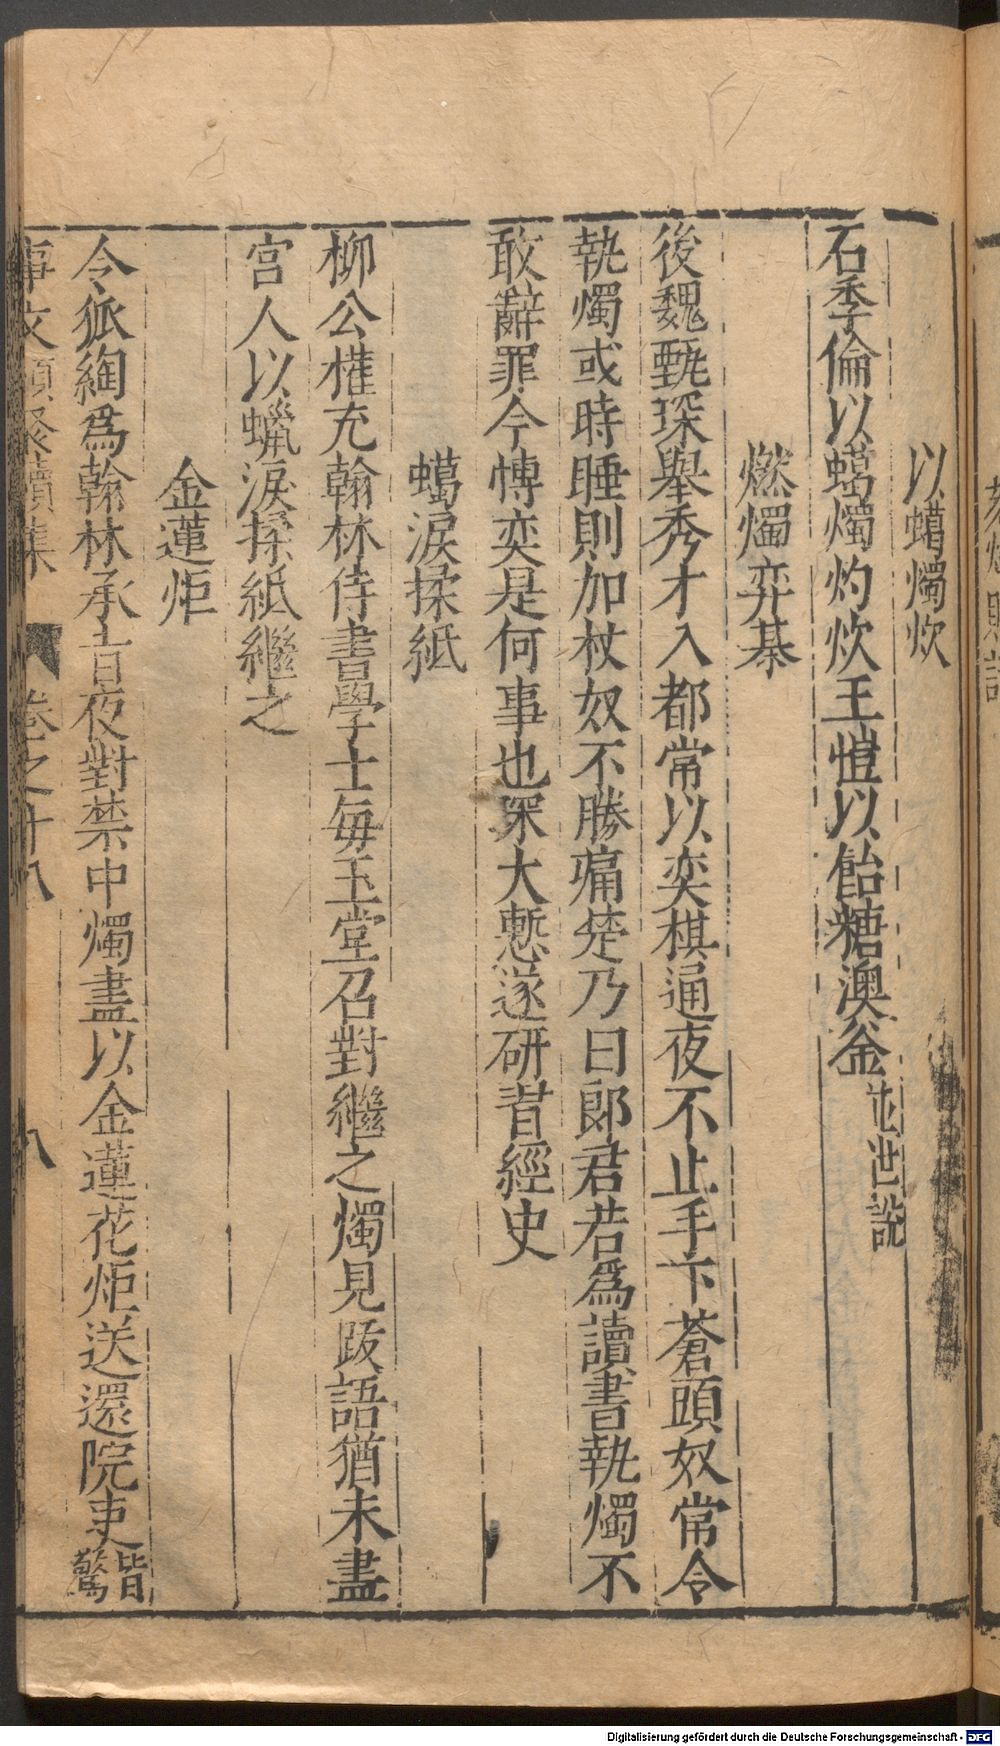 以蠟燭炊
石季倫以蠟燭灼炊王愷以飴糖澳釜
世說
燃燭弈棊
後魏甄琛舉秀才入都常以奕棋通夜不止手下蒼頭奴常令
執燭或時睡則加杖奴不勝痛楚乃曰郎君若爲讀書執燭不
敢辭罪今博奕是何事也琛大慙遂研習經史
蠟淚揉紙
柳公權充翰林侍書學士每玉堂召對繼之燭見跋語猶未盡
宫人以蠟淚揉紙繼之
金蓮炬
令狐綯爲翰林承旨夜對禁中燭盡以金蓮花炬送還院吏皆驚
事文類聚續集 卷之十八 八
Digitalisierung gefördert durch die Deutsche Forschungsgemeinschaft - DFG